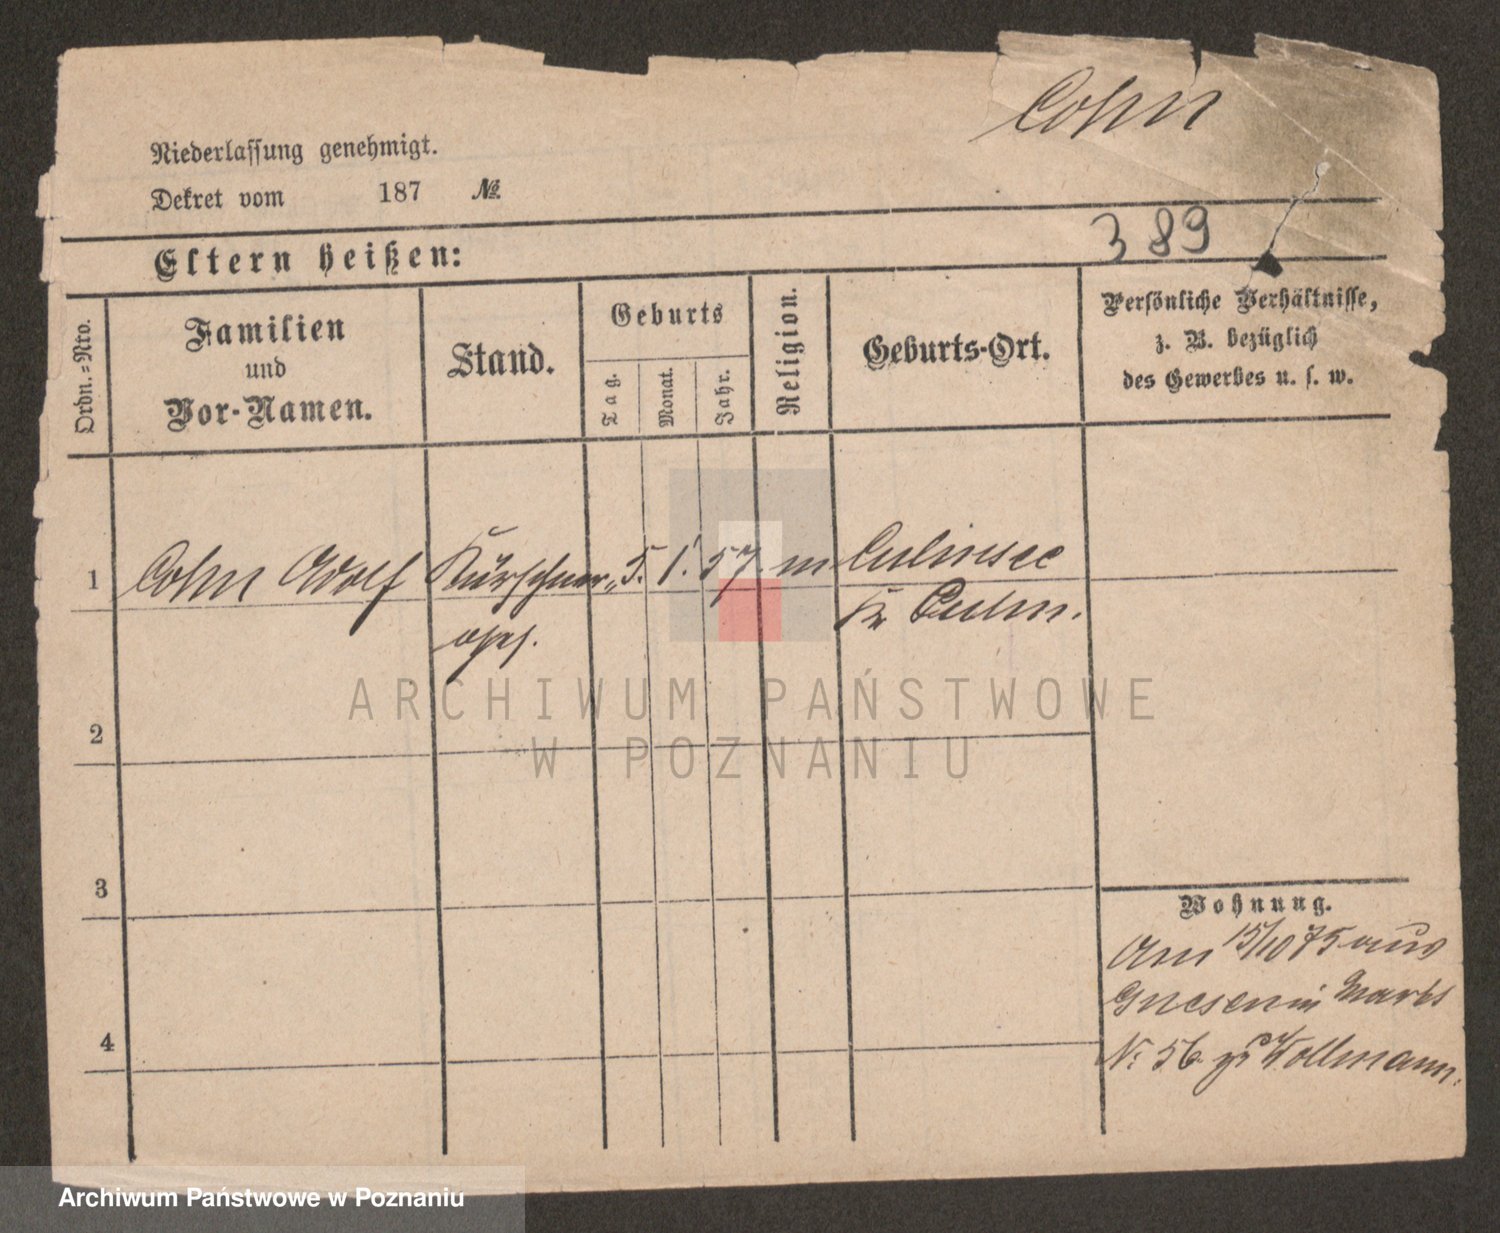 Cohn
Niederlassung genehmigt.
Dekret vom 187 №
389
Eltern heißen:
Ordn.=Nro.
Familien
und
Vor-Namen.
Stand.
Geburts
Tag.
Monat.
Jahr.
Religion.
Geburts-Ort.
Persönliche Verhältnisse,
z. B. bezüglich
des Gewerbes u. s. w.
1 Cohn Adolf Kürschner 5. 1. 57. m Culmsee
Kr Culm.
2
3
4
Wohnung.
Am 15/10 75 aus
Gnesen in Markt
N: 56 zu Wollmann.
ARCHIWUM PAŃSTWOWE
W POZNANIU
Archiwum Państwowe w Poznaniu